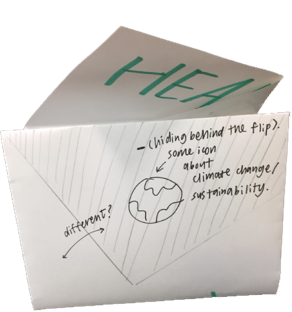 HEA
- (hiding behind the flip).
some icon
about
climate change/
sustainability.
different?